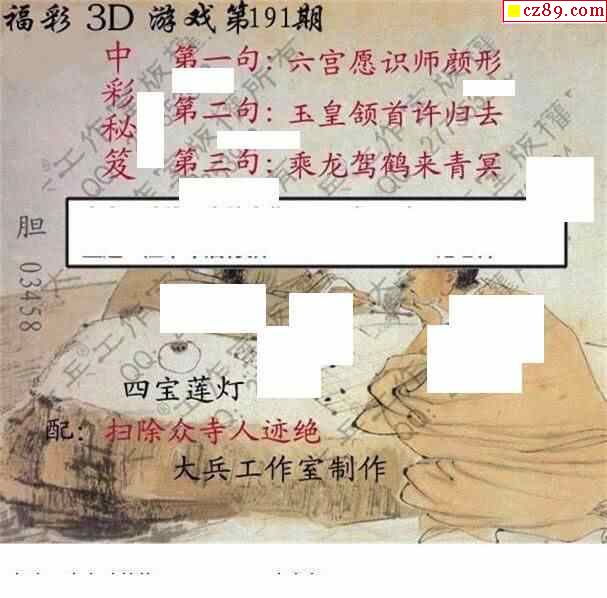 福彩 3D 游戏 第191期
cz89.com
中彩秘笈
第一句: 六宫愿识师颜形
第二句: 玉皇颔首许归去
第三句: 乘龙驾鹤来青冥
胆 03458
四宝莲灯
配: 扫除众寺人迹绝
大兵工作室制作